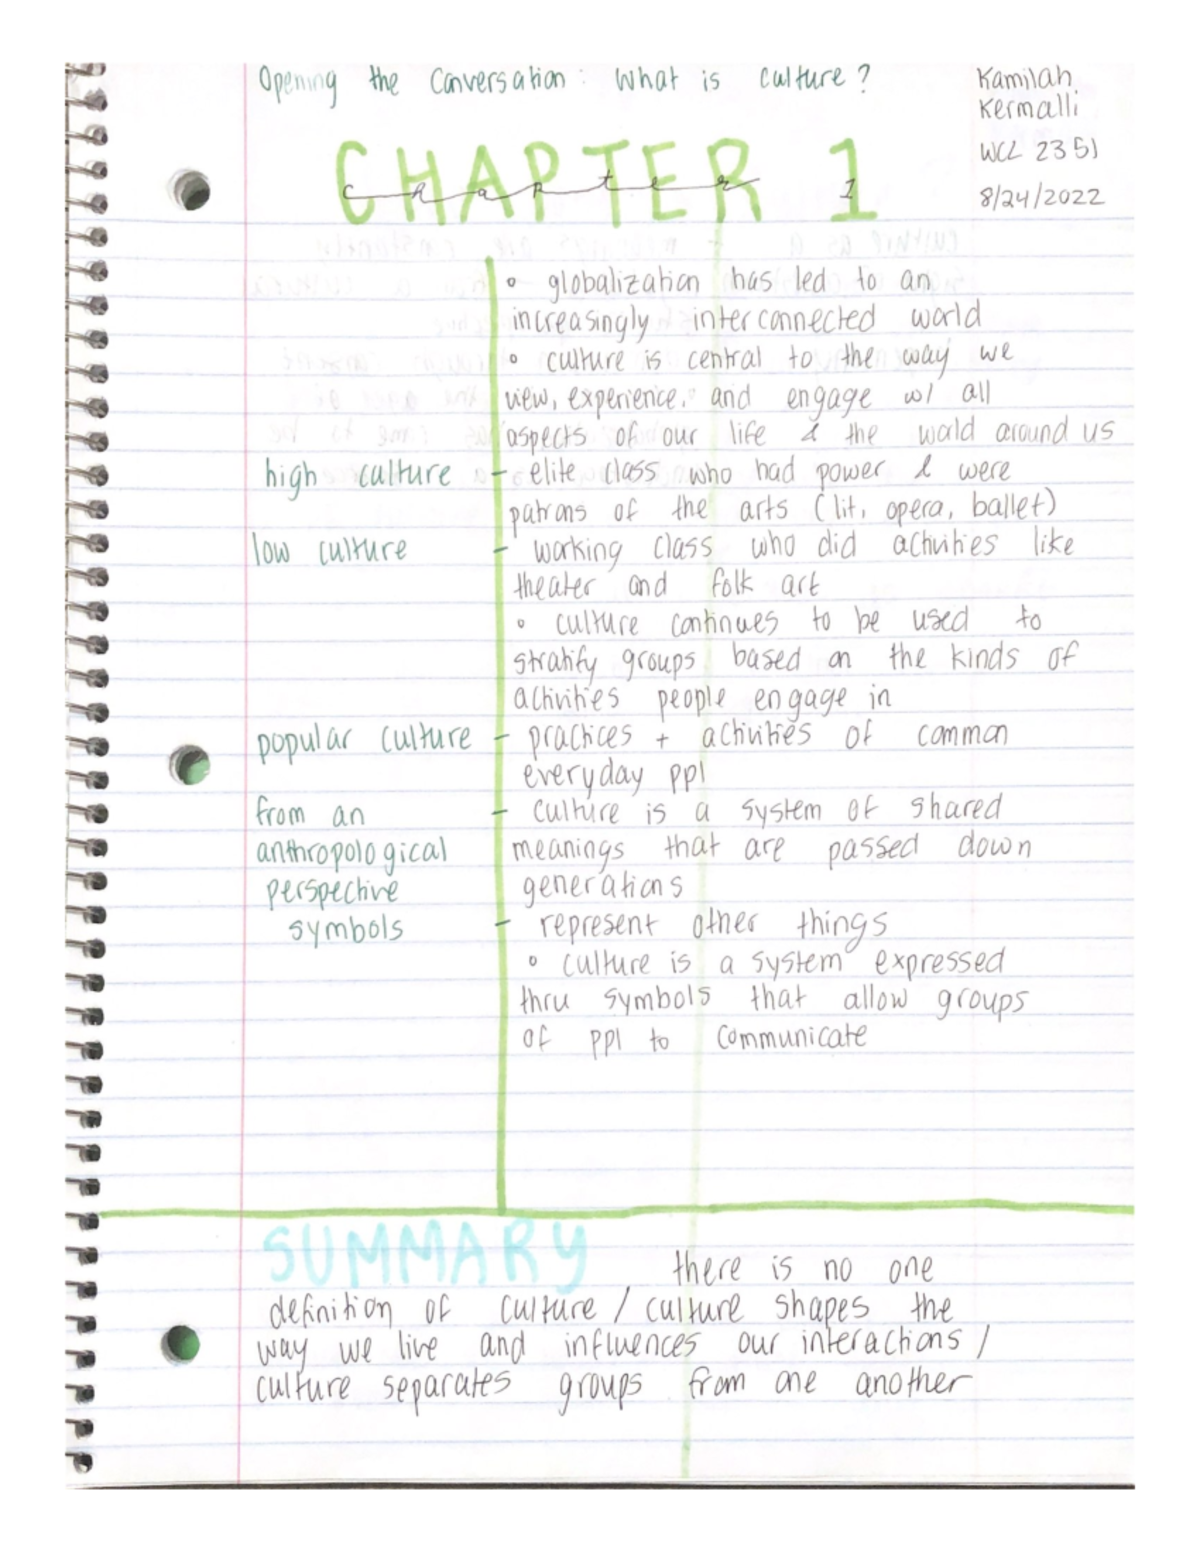 Opening the Conversation: What is culture?
Kamilah
Kermalli
WCL 2351
8/24/2022
CHAPTER 1
chapter 1
◦ globalization has led to an
increasingly interconnected world
◦ culture is central to the way we
view, experience, and engage w/ all
aspects of our life & the world around us
high culture - elite class who had power & were
patrons of the arts (lit, opera, ballet)
low culture - working class who did activities like
theater and folk art
◦ culture continues to be used to
stratify groups based on the kinds of
activities people engage in
popular culture - practices + activities of common
everyday ppl
from an - culture is a system of shared
anthropological meanings that are passed down
perspective generations
symbols - represent other things
◦ culture is a system expressed
thru symbols that allow groups
of ppl to communicate
SUMMARY there is no one
definition of culture / culture shapes the
way we live and influences our interactions /
culture separates groups from one another